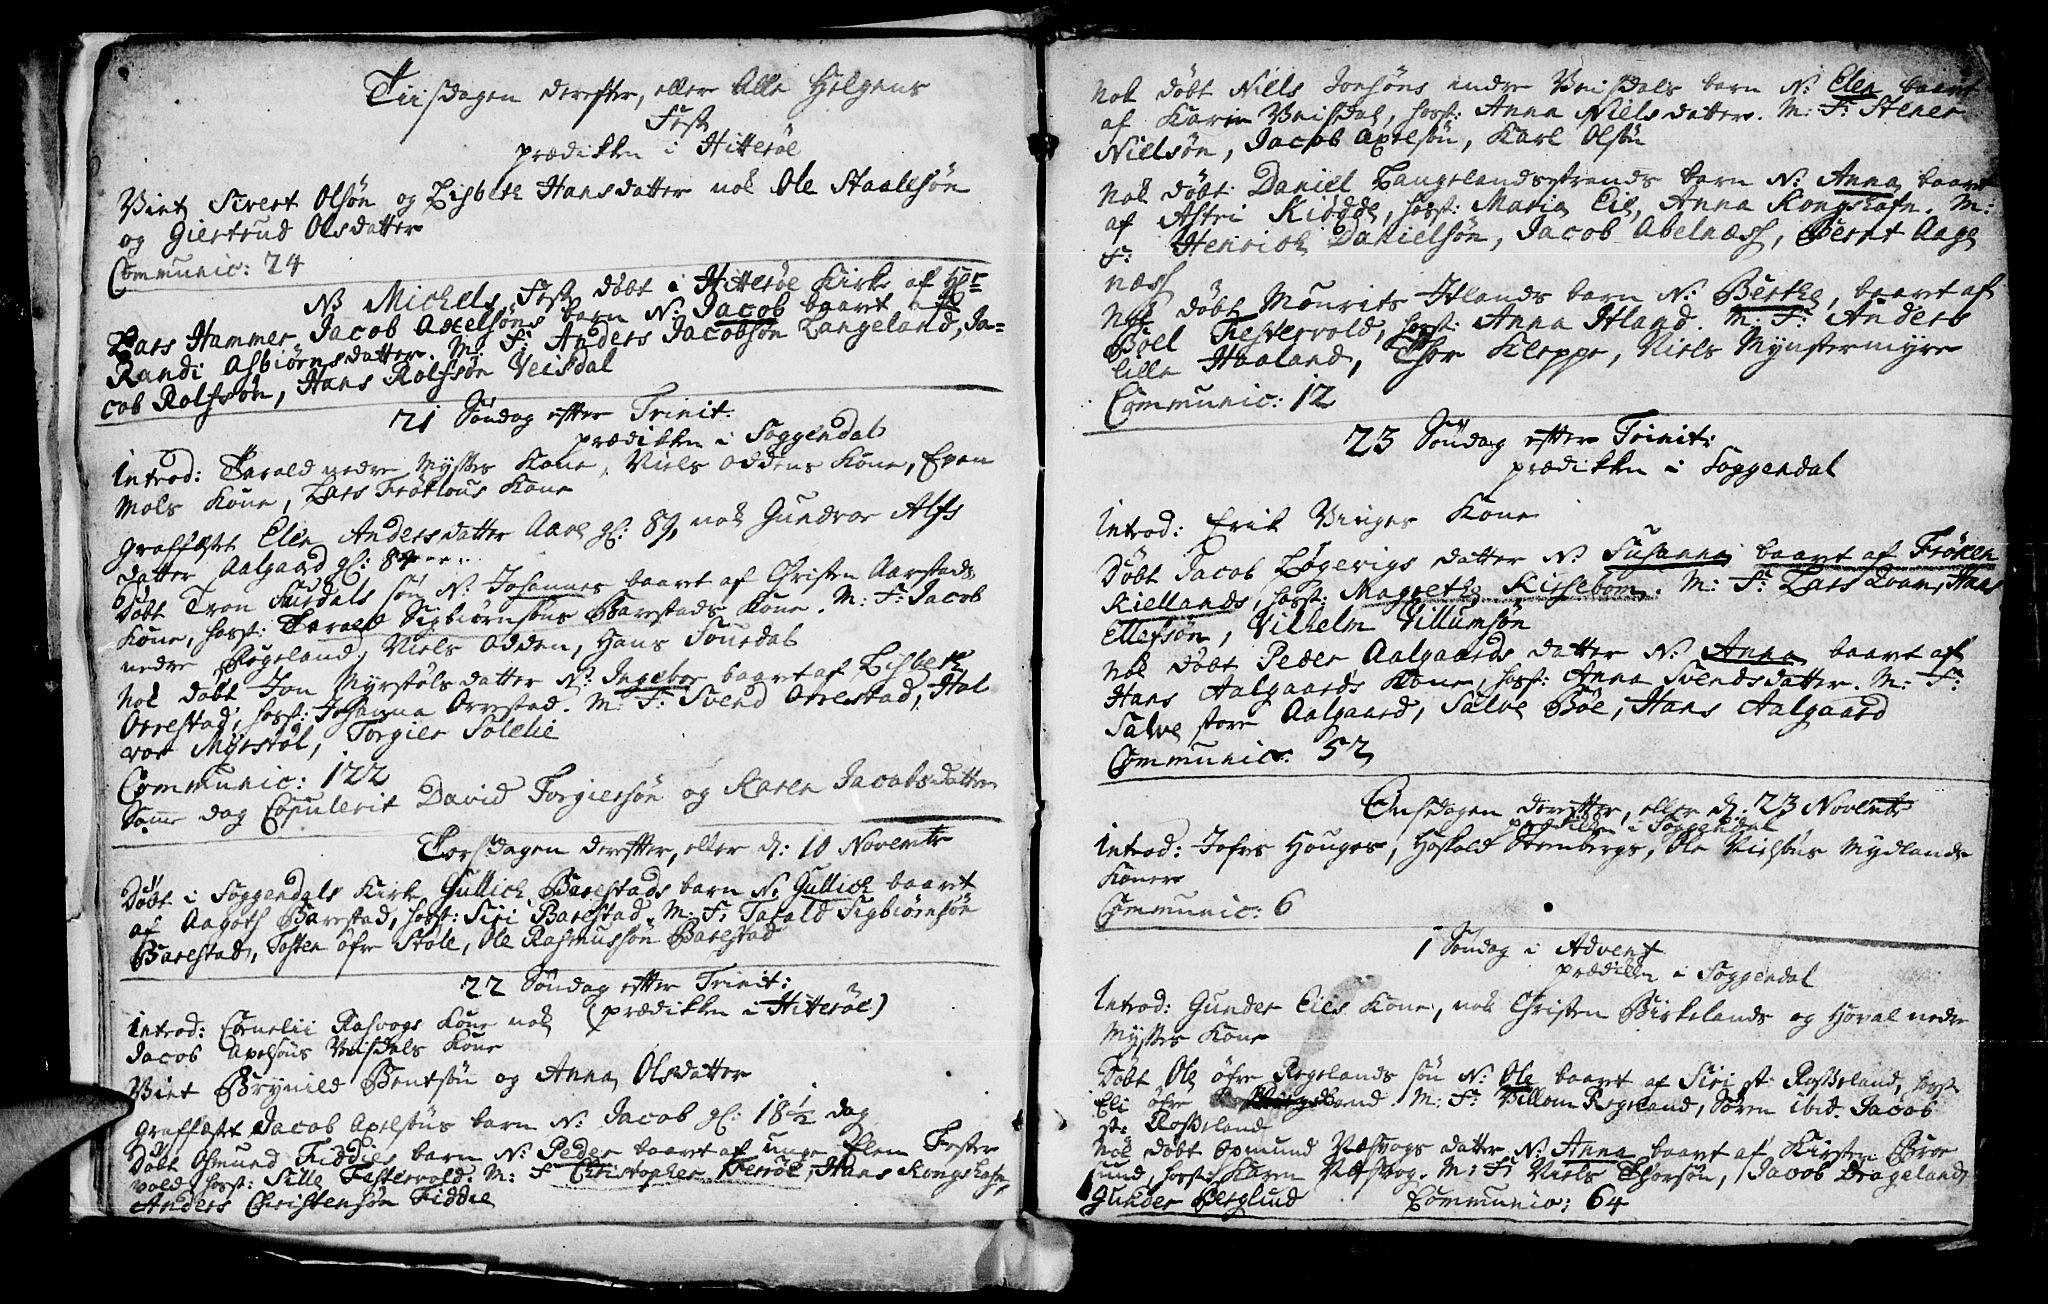 Tiisdagen derefter, eller Alle Helgens
Fest
prædiken i Hitterøe
Viet Sivert Olsøn og Lisbeth Hansdatter nok Ole Staalesøn
og Giertrud Olsdatter
Communic: 24
NB Michels Fest døbt i Hitterøe Kirke af Hr
Lars Hammer Jacob Axelsøns barn N: Jacob baaret af
Randi Asbiørnsdatter. M: F: Anders Jacobsøn Langeland, Ja=
cob Rolfsøn, Hans Rolfsøn Veisdal
21 Søndag efter Trinit:
prædiken i Soggendal
Introd: Tarald nedre Mysses Kone, Niels Oddens Kone, Even
Mols Kone, Lars Frøitlous Kone
Graffæstet Elen Andersdatter Aare gl: 89, nok Gundvor Alfs
datter Aalgaard gl: 84
Døbt Tron Surdals søn N: Johannes baaret af Christen Aarstads
Kone, host: Tarald Sigbiørnsøns Barestads Kone. M: F: Jacob
nedre Regeland, Niels Odden, Hans Souredal
Nok døbt Jon Myrstøls datter N: Ingebor baaret af Lisbeth
Orrestad, host: Johanna Orrestad. M: F: Svend Orrestad, Hal
vor Myrstøl, Torgier Solelie
Communic: 122
Same dag Copulerit David Torgiersøn og Karen Jacobsdatter
Torsdagen derefter, eller d: 10 Novembr
Døbt i Soggendals Kirke Gullich Barestads barn N: Gullich baaret
af Aagoth Barestad, host: Siri Barestad. M: F: Tarald Sigbiørnsøn
Barestad, Tosten øfre Stole, Ole Rasmussøn Barestad
22 Søndag efter Trinit:
(prædiken i Hitterøe)
Introd: Cornelii Rasvogs Kone nok
Jacob Axelsøns Veisdals Kone
Viet Brynild Bentsøn og Anna Olsdatter
Graffæstet Jacob Axelsøns barn N: Jacob gl: 18½ dag
Døbt Osmund Fiddies barn N: Peder baaret af unge Elen Fester
vold, host: Sille Festervold. M: F Christopher Terøe, Hans Kongshafn,
Anders Christensøn Fiddie
Nok døbt Niels Joensøns indre Veisdals barn N: Elen baaret
af Karen Veisdal, host: Anna Nielsdatter. M: F: Stener
Nielsøn, Jacob Axelsøn, Karl Olsøn
Nok døbt Daniel Langelandsstrands barn N: Anna baaret
af Astri Kiødde, host: Maria Eie, Anna Kongshafn. M:
F: Henrich Danielsøn, Jacob Abelnæss, Bernt Aage
næss
Nok døbt Mourits Itlands barn N: Berthe, baaret af
Boel Festervold, host: Anna Itland. M: F: Anders
lille Haaland, Thor Kleppe, Niels Mynstermyre
Communic: 12
23 Søndag efter Trinit:
prædiken i Soggendal
Introd: Erik Vinges Kone
Døbt Jacob Løgevigs datter N: Susanna baaret af Frøken
Kiellands, host: Magrethe Kirsebom. M: F: Lars Doan, Hans
Ellefsøn, Vilhelm Villumsøn
Nok døbt Peder Aalgaards datter N: Anna baaret af
Hans Aalgaards Kone, host: Anna Svendsdatter. M: F:
Salve store Aalgaard, Salve Bøe, Hans Aalgaard
Communic: 52
Onsdagen derefter, eller d: 23 Novembr
prædiken i Soggendal
Introd: Jofrs Houges, Hoskold Steenbergs, Ole Nielsøns Mydlands
Koner
Communic: 6
1 Søndag i Advent
prædiken i Soggendal
Introd: Gunder Eies Kone, nok Christen Birkelands og Hoval nedre
Mysses Kone
Døbt Ole øfre Regelands søn N: Ole baaret af Siri st: Rosseland, host
Eli øfre M: F: Villom Regeland, Søren ibid. Jacob
st: Rosseland
Nok døbt Osmund Næsvogs datter N: Anna baaret af Kirsten Bror
uud, host: Karen Næsvog. M: F: Niels Thorsøn, Jacob Drageland,
Gunder Berglund Communic: 64